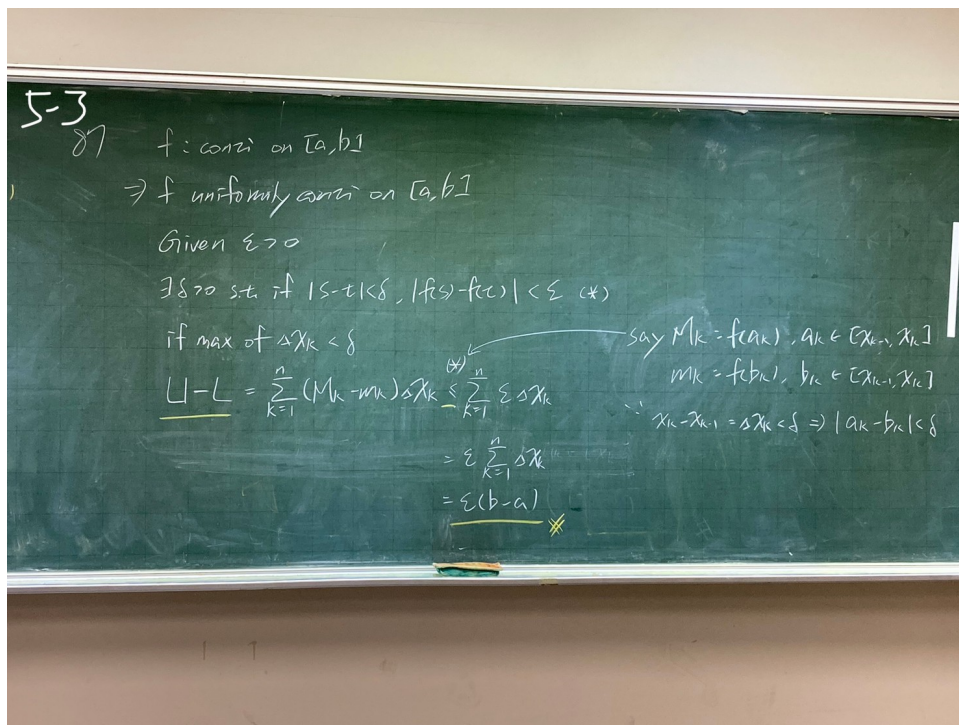 5-3
87
f : conti on [a,b]
⇒ f uniformly conti on [a,b]
Given ε>0
∃δ>0 s.t. if |s-t|<δ, |f(s)-f(t)| < ε (*)
if max of Δx_k < δ
U-L = \sum_{k=1}^{n} (M_k-m_k)Δx_k \overset{(*)}{≤} \sum_{k=1}^{n} ε Δx_k
= ε \sum_{k=1}^{n} Δx_k
= ε(b-a) ※
say M_k = f(a_k), a_k ∈ [x_{k-1}, x_k]
m_k = f(b_k), b_k ∈ [x_{k-1}, x_k]
∵ x_k - x_{k-1} = Δx_k < δ ⇒ |a_k-b_k| < δ